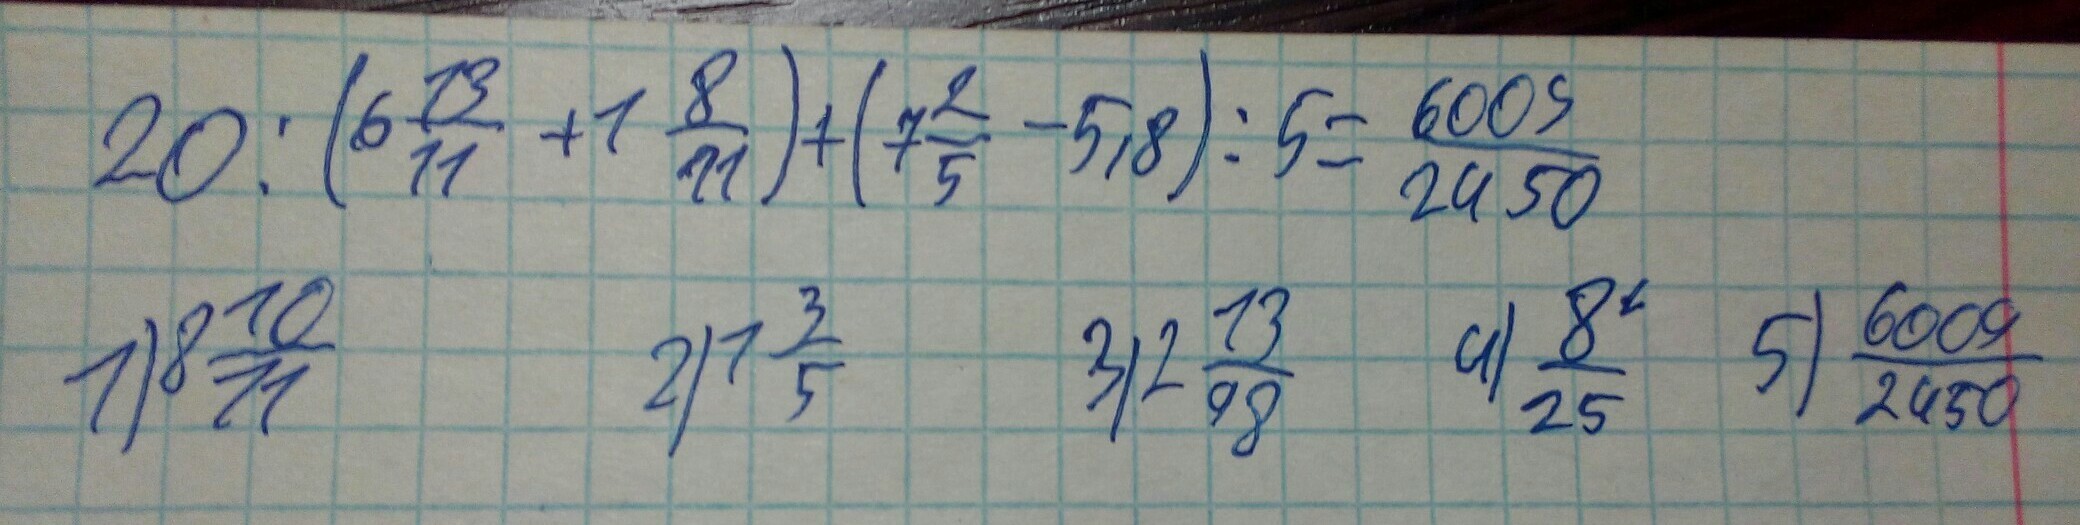 20 : (6 13/11 + 1 8/11) + (7 2/5 - 5,8) : 5 = 6009/2450
1) 8 10/11 2) 1 3/5 3) 2 13/98 4) 8/25 5) 6009/2450